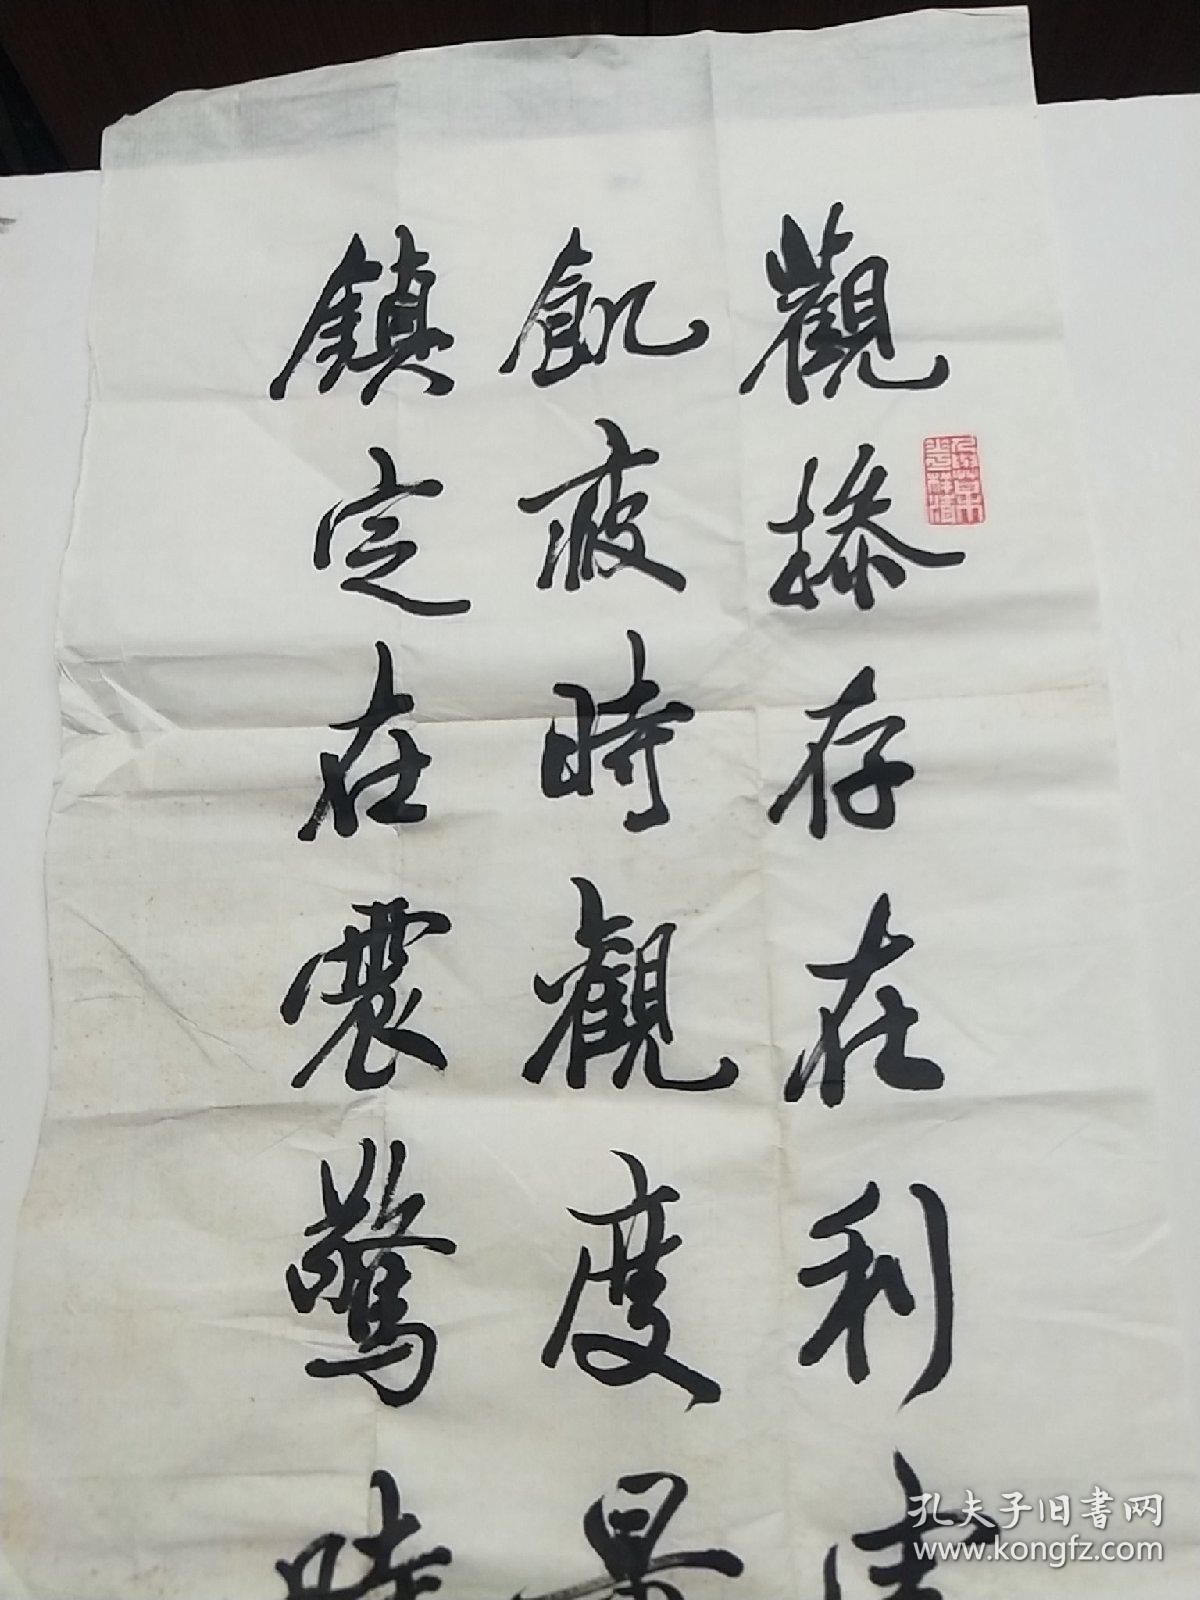 觀操存在利害
飢疲時觀度量
鎮定在震驚時
孔夫子旧书网
www.kongfz.com